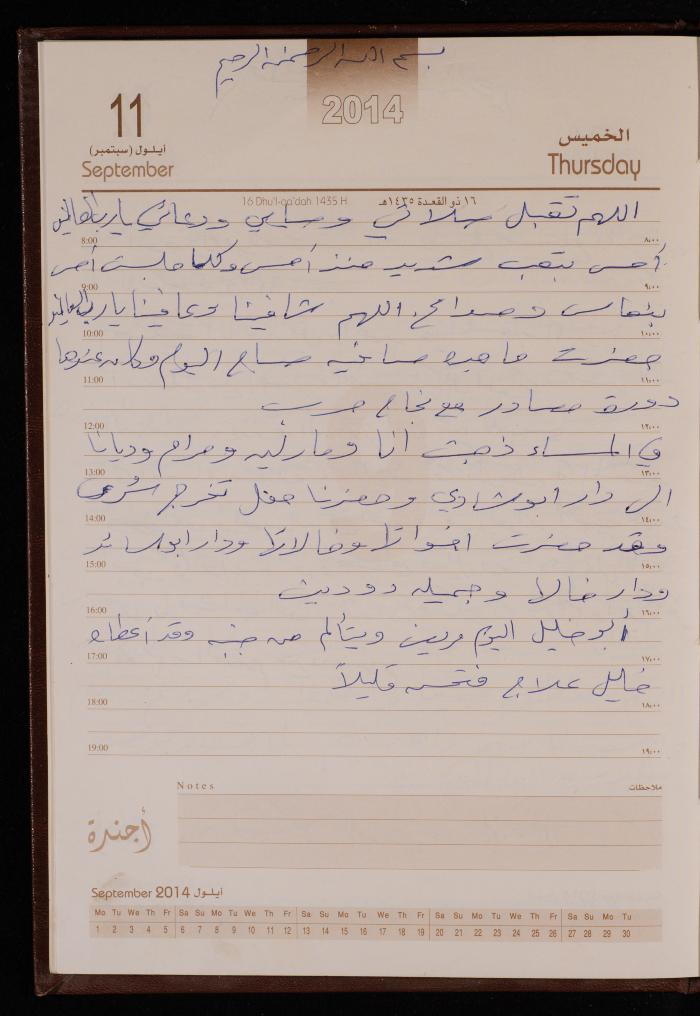 بسم الله الرحمن الرحيم
2014
11
أيلول (سبتمبر)
September
الخميس
Thursday
16 Dhu'l-qa'dah 1435 H
١٦ ذو القعدة ١٤٣٥هـ
اللهم تقبل صلاتي وصيامي ودعائي يا رب العالمين
8:00 ٨،٠٠
أحس بتعب شديد منذ أمس وكلما جلست أحس
9:00 ٩،٠٠
بنعاس اللهم شافينا وعافينا يا رب العالمين
10:00 ١٠،٠٠
حضرت ماجده صافيه صباح اليوم وكان عندها
11:00 ١١،٠٠
دورة مصادر مع نجاح حرب
12:00 ١٢،٠٠
في المساء ذهبت أنا ومارليه ومرام وديانا
13:00 ١٣،٠٠
الى دار ابو شادي وحضرنا حفل تخرج
14:00 ١٤،٠٠
وقد حضرت اخواتها وخالاتها ودار ابو
15:00 ١٥،٠٠
ودار خالها وجميله
16:00 ١٦،٠٠
أبو خليل اليوم مريض ويتألم من جنبه وقد أعطاه
17:00 ١٧،٠٠
خليل علاج فتحسن قليلاً
18:00 ١٨،٠٠
19:00 ١٩،٠٠
Notes ملاحظات
أجندة
September 2014 أيلول
Mo Tu We Th Fr Sa Su Mo Tu We Th Fr Sa Su Mo Tu We Th Fr Sa Su Mo Tu We Th Fr Sa Su Mo Tu
1 2 3 4 5 6 7 8 9 10 11 12 13 14 15 16 17 18 19 20 21 22 23 24 25 26 27 28 29 30